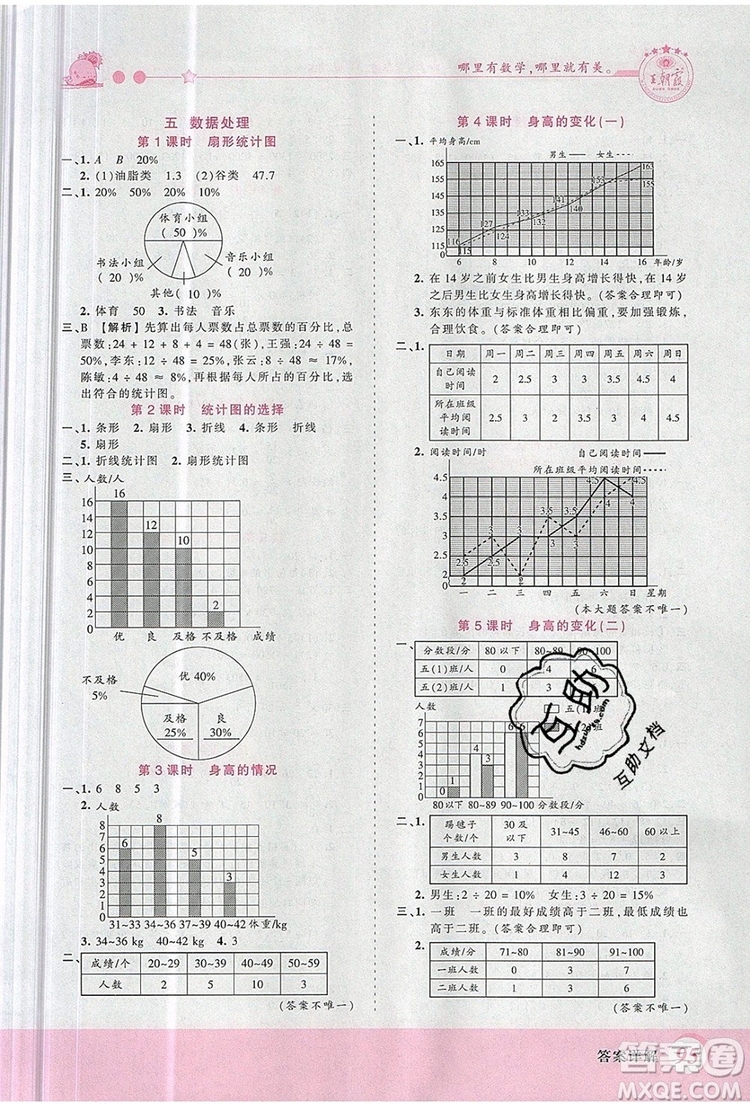 哪里有数学,哪里就有美。
王朝霞
五 数据处理
第1课时 扇形统计图
一、1. A B 20%
2. (1)油脂类 1.3 (2)谷类 47.7
二、1. 20% 50% 20% 10%
体育小组
( 50 )%
书法小组
( 20 )%
音乐小组
( 20 )%
其他( 10 )%
2. 体育 50 3. 书法 音乐
三、B 【解析】先算出每人票数占总票数的百分比,总
票数:24 + 12 + 8 + 4 = 48(张),王强:24 ÷ 48 =
50%,李东:12 ÷ 48 = 25%,张云:8 ÷ 48 ≈ 17%,
陈敏:4 ÷ 48 ≈ 8%。再根据每人所占的百分比,选
出符合的统计图。
第2课时 统计图的选择
一、1. 条形 2. 扇形 3. 折线 4. 条形 折线
5. 扇形
二、1. 折线统计图 2. 扇形统计图
三、人数/人
18
16
14
12
10
8
6
4
2
0
16
12
10
2
优 良 及格 不及格 成绩
不及格
5%
优 40%
及格
25%
良
30%
第3课时 身高的情况
一、1. 6 8 5 3
2. 人数
8
7
6
5
4
3
2
1
0
6
8
5
3
31~33 34~36 37~39 40~42 体重/kg
3. 34~36 kg 40~42 kg 4. 3
二、
成绩/个 20~29 30~39 40~49 50~59
人数 2 5 10 3
(答案不唯一)
第4课时 身高的变化(一)
一、1. 平均身高/cm
男生—— 女生-----
165
160
155
150
145
140
135
130
125
120
115
0
6 8 10 12 14 16 年龄/岁
2. 在 14 岁之前女生比男生身高增长得快,在 14 岁
之后男生比女生身高增长得快。(答案合理即可)
3. 东东的体重与标准体重相比偏重,要加强锻炼,
合理饮食。(答案合理即可)
二、1.
日期 周一 周二 周三 周四 周五 周六 周日
自己阅读
时间 2 2.5 3 3 3.5 4.5 4
所在班级
平均阅读
时间
2. 阅读时间/时 自己阅读时间——
所在班级平均阅读时间-----
4.5
4
3.5
3
2.5
2
0
一 二 三 四 五 六 日 星期
(本大题答案不唯一)
第5课时 身高的变化(二)
一、
分数段/分 80 以下 80~89 90~100
五(1)班/人 0 4 6
五(2)班/人 1
人数
五(1)班
五(2)班
8
7
6
5
4
3
2
1
0
80 以下 80~89 90~100 分数段/分
二、1.
踢毽子
个数/个
30 及
以下
31~45 46~60 60 以上
男生人数 3 8 7 2
女生人数 1 6 10 3
2. 男生:2 ÷ 20 = 10% 女生:3 ÷ 20 = 15%
三、1. 一班 一班的最好成绩高于二班,而最差成绩也
高于二班。(答案合理即可)
2.
成绩/分 71~80 81~90 91~100
一班人数
二班人数
(答案不唯一)
互助
hdzuoye.com
互助文档
答案详解
答案圈
MXQE.COM